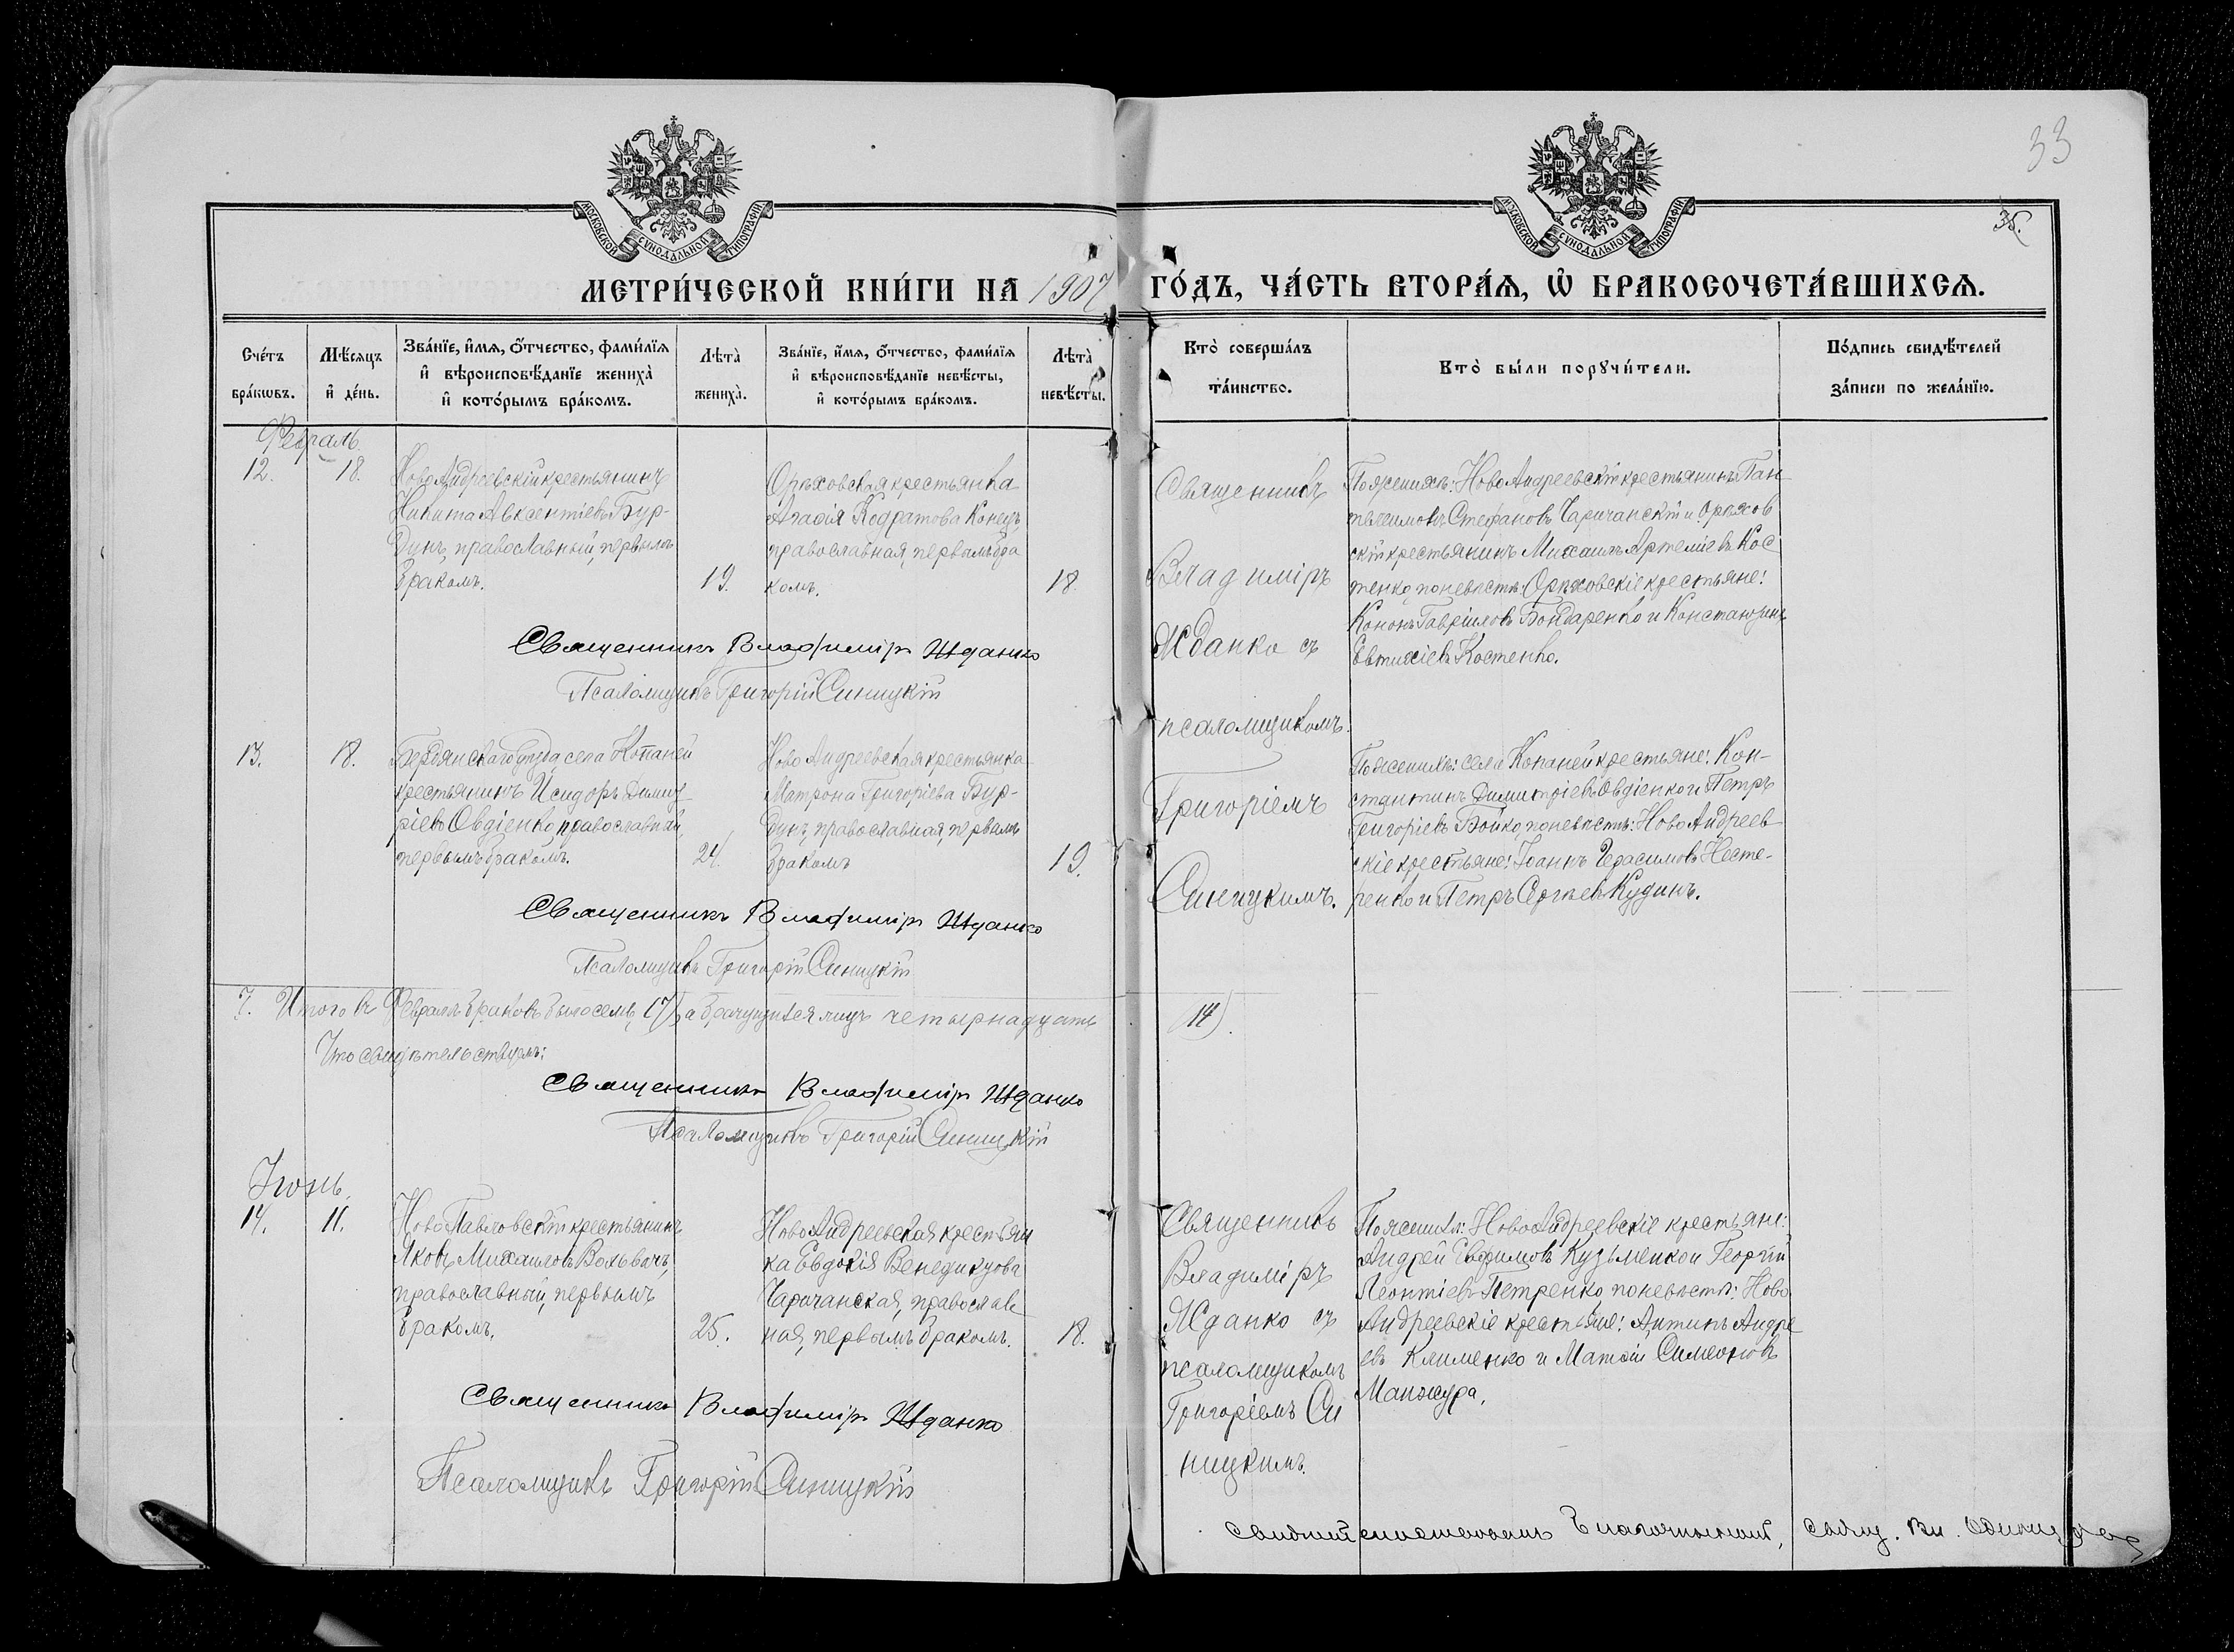 33
35.
МОСКОВСКОЙ СѴНОДАЛЬНОЙ ТИПОГРАФІИ
МОСКОВСКОЙ СѴНОДАЛЬНОЙ ТИПОГРАФІИ
МЕТРИ́ЧЕСКОЙ КНИ́ГИ НА 1907 ГО́ДЪ, ЧА́СТЬ ВТОРА́Ѧ, Ѡ БРАКОСОЧЕТА́ВШИХСѦ.
Счётъ бра́кѡвъ.
Мѣ́сяцъ и де́нь.
Зва́нїе, и́мѧ, о́тчество, фами́лїѧ и вѣроисповѣ́данїе жениха̀ и кото́рымъ бра́комъ.
Лѣта̀ жениха̀.
Зва́нїе, и́мѧ, о́тчество, фами́лїѧ и вѣроисповѣ́данїе невѣ́сты, и кото́рымъ бра́комъ.
Лѣта̀ невѣ́сты.
Кто̀ соверша́лъ та́инство.
Кто̀ бы́ли порꙋчи́тели.
По́дпись свидѣ́телей за́писи по жела́нїю.
Февраль.
12. 18.
НовоАндреевскій крестьянинъ
Никита Авксентіевъ Бур-
дунъ, православный, первымъ
бракомъ.
19.
Орѣховская крестьянка
Агафія Кодратова Конецъ,
православная, первымъ бра
комъ.
18.
Священникъ
Владиміръ
Жданко съ
псаломщикомъ
Григоріемъ
Синицкимъ.
По женихѣ: НовоАндреевскій крестьянинъ Пан
телеимонъ Стефановъ Чаричанскій и Орѣхов
скій крестьянинъ Михаилъ Артеміевъ Кос
тенко, по невѣстѣ: Орѣховскіе крестьяне:
Кононъ Гавріиловъ Бондаренко и Константинъ
Евтихіевъ Костенко.
Священникъ Владиміръ Жданко
Псаломщикъ Григорій Синицкій
13. 18.
Бердянскаго уѣзда села Копаней
крестьянинъ Исидоръ Димит
ріевъ Овдіенко, православный,
первымъ бракомъ.
24.
НовоАндреевская крестьянка
Матрона Григоріева Бур-
дунъ, православная, первымъ
бракомъ
19.
По женихѣ: села Копаней крестьяне: Кон-
стантинъ Димитріевъ Овдіенко и Петръ
Григоріевъ Бойко, по невѣстѣ: НовоАндреев
скіе крестьяне: Іоаннъ Герасимовъ Несте-
ренко и Петръ Сергѣевъ Кудинъ.
Священникъ Владиміръ Жданко
Псаломщикъ Григорій Синицкій
7. Итого въ Февралѣ браковъ было семь (7), а брачущихся лицъ четырнадцать (14).
Что свидѣтельствуемъ:
Священникъ Владиміръ Жданко
Псаломщикъ Григорій Синицкій
Іюнь.
14. 11.
НовоПавловскій крестьянинъ
Яковъ Михаиловъ Вольвачъ,
православный, первымъ
бракомъ.
25.
НовоАндреевская крестьян
ка Евдокія Венедиктова
Чаричанская, православ
ная, первымъ бракомъ.
18.
Священникъ
Владиміръ
Жданко съ
псаломщикомъ
Григоріемъ Си
ницкимъ.
По женихѣ: НовоАндреевскіе крестьяне:
Андрей Евфимовъ Кузьменко и Георгій
Леонтіевъ Петренко, по невѣстѣ: Ново
Андреевскіе крестьяне: Антипъ Андре
евъ Клименко и Матѳій Симеоновъ
Манжура.
Священникъ Владиміръ Жданко
Псаломщикъ Григорій Синицкій
Благочинный, свящ. Вл.